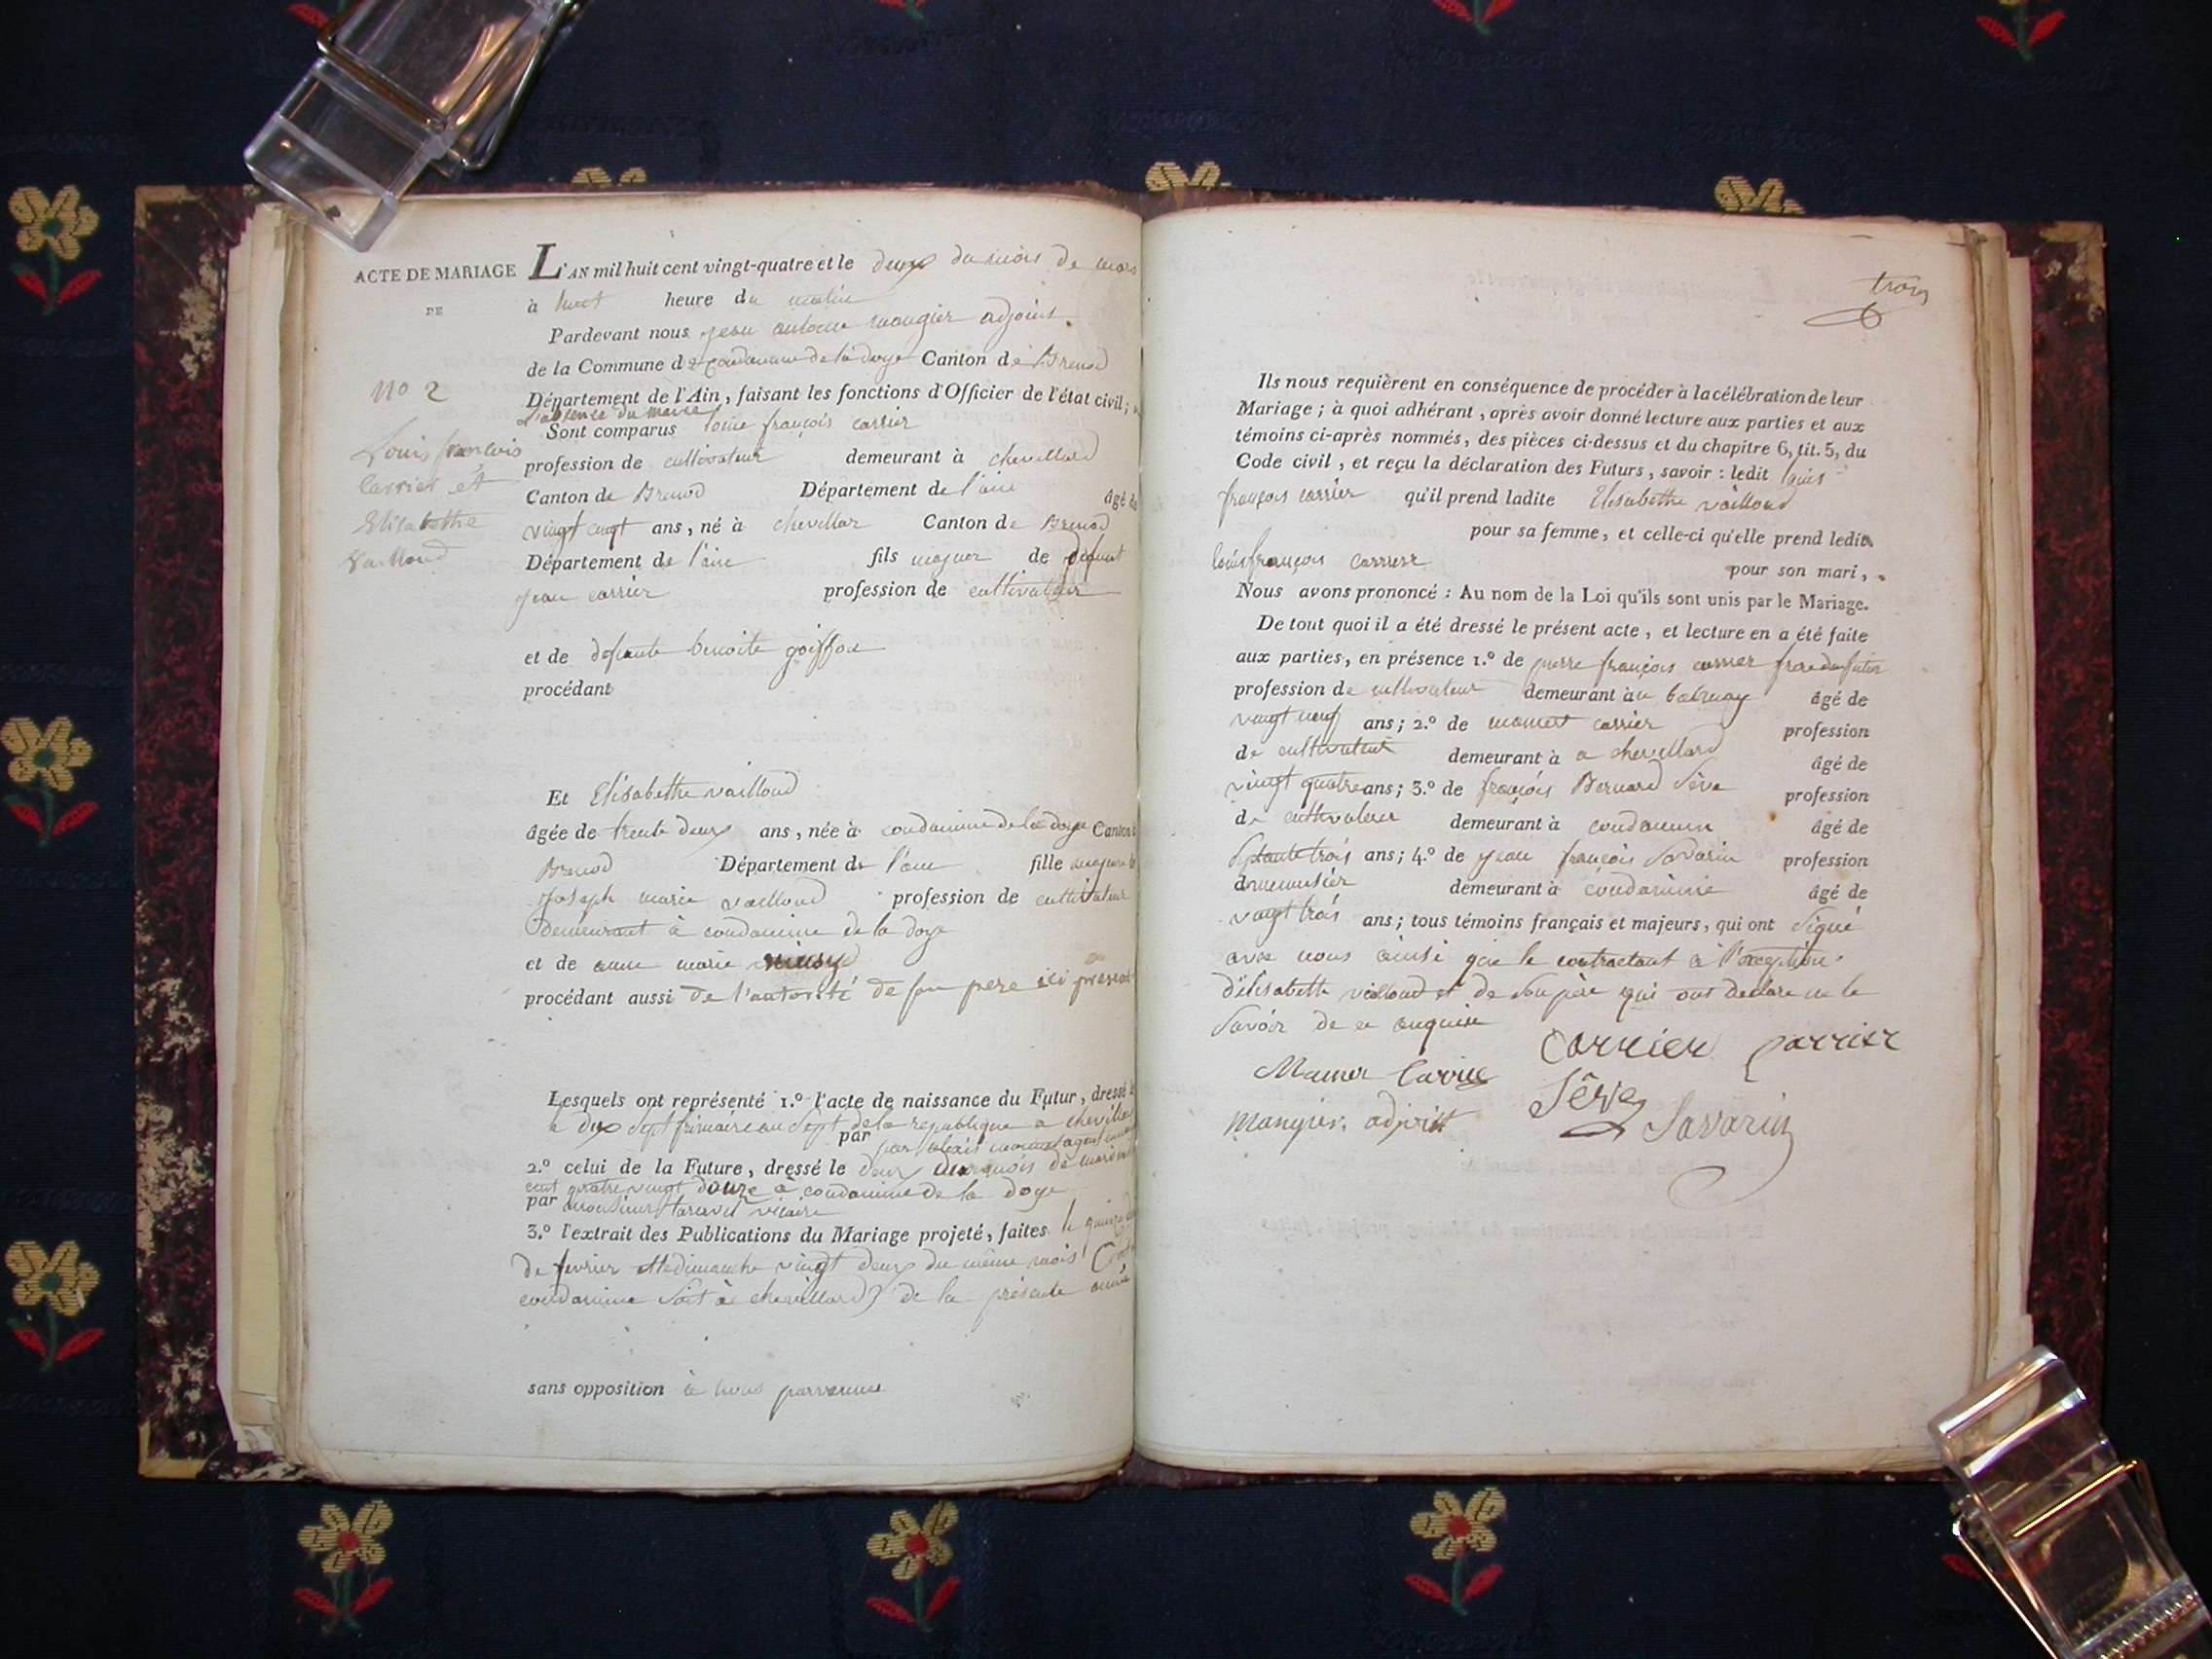 ACTE DE MARIAGE
DE
No 2
Louis françois
Carrier et
Elisabethe
Vailloud
L'AN mil huit cent vingt-quatre et le deux du mois de mars
à huit heure du matin
Pardevant nous jean antoine maugier adjoint
de la Commune de Condamine de la doye Canton de Brenod
Département de l'Ain, faisant les fonctions d'Officier de l'état civil;
l'absence du maire
Sont comparus louis françois carrier
profession de cultivateur demeurant à chevillard
Canton de Brenod Département de l'ain âgé de
vingt cinq ans, né à chevillar Canton de Brenod
Département de l'ain fils majeur de défunt
jean carrier profession de cultivateur
et de défunte benoite goiffon
procédant
Et Elisabethe vailloud
âgée de trente deux ans, née à condamine de la doye Canton
Brenod Département de l'ain fille majeure
joseph marie vailloud profession de cultivateur
Demeurant à condamine de la doye
et de anne marie
procédant aussi de l'autorité de son pere ici présent
Lesquels ont représenté 1.º l'acte de naissance du Futur, dressé
le dix sept frimaire an sept de la republique a chevillard
par par alexis agent
2.º celui de la Future, dressé le deux du mois de mars
cent quatre vingt douze à condamine de la doye
par monsieur vicaire
3.º l'extrait des Publications du Mariage projeté, faites le quinze
de fevrier et le dimanche vingt deux du même mois
condamine soit à chevillard) de la présente année
sans opposition à nous parvenue
trois
Ils nous requièrent en conséquence de procéder à la célébration de leur
Mariage; à quoi adhérant, après avoir donné lecture aux parties et aux
témoins ci-après nommés, des pièces ci-dessus et du chapitre 6, tit. 5, du
Code civil, et reçu la déclaration des Futurs, savoir: ledit louis
françois carrier qu'il prend ladite Elisabethe vailloud
pour sa femme, et celle-ci qu'elle prend ledit
louis françois carrier pour son mari,
Nous avons prononcé: Au nom de la Loi qu'ils sont unis par le Mariage.
De tout quoi il a été dressé le présent acte, et lecture en a été faite
aux parties, en présence 1.º de pierre françois carrier frere du futur
profession de cultivateur demeurant à au balmay âgé de
vingt neuf ans; 2.º de mamert carrier profession
de cultivateur demeurant à a chevillard âgé de
vingt quatre ans; 3.º de françois Bernard Sève profession
de cultivateur demeurant à condamine âgé de
septante trois ans; 4.º de jean françois Savarin profession
de menuisier demeurant à condamine âgé de
vingt trois ans; tous témoins français et majeurs, qui ont signé
avec nous ainsi que le contractant à l'exception
d'élisabethe vailloud et de son père qui ont declaré ne le
savoir de ce enquise
Carrier Carrier
Mamer Carrier Sève
Maugier, adjoint Savarin